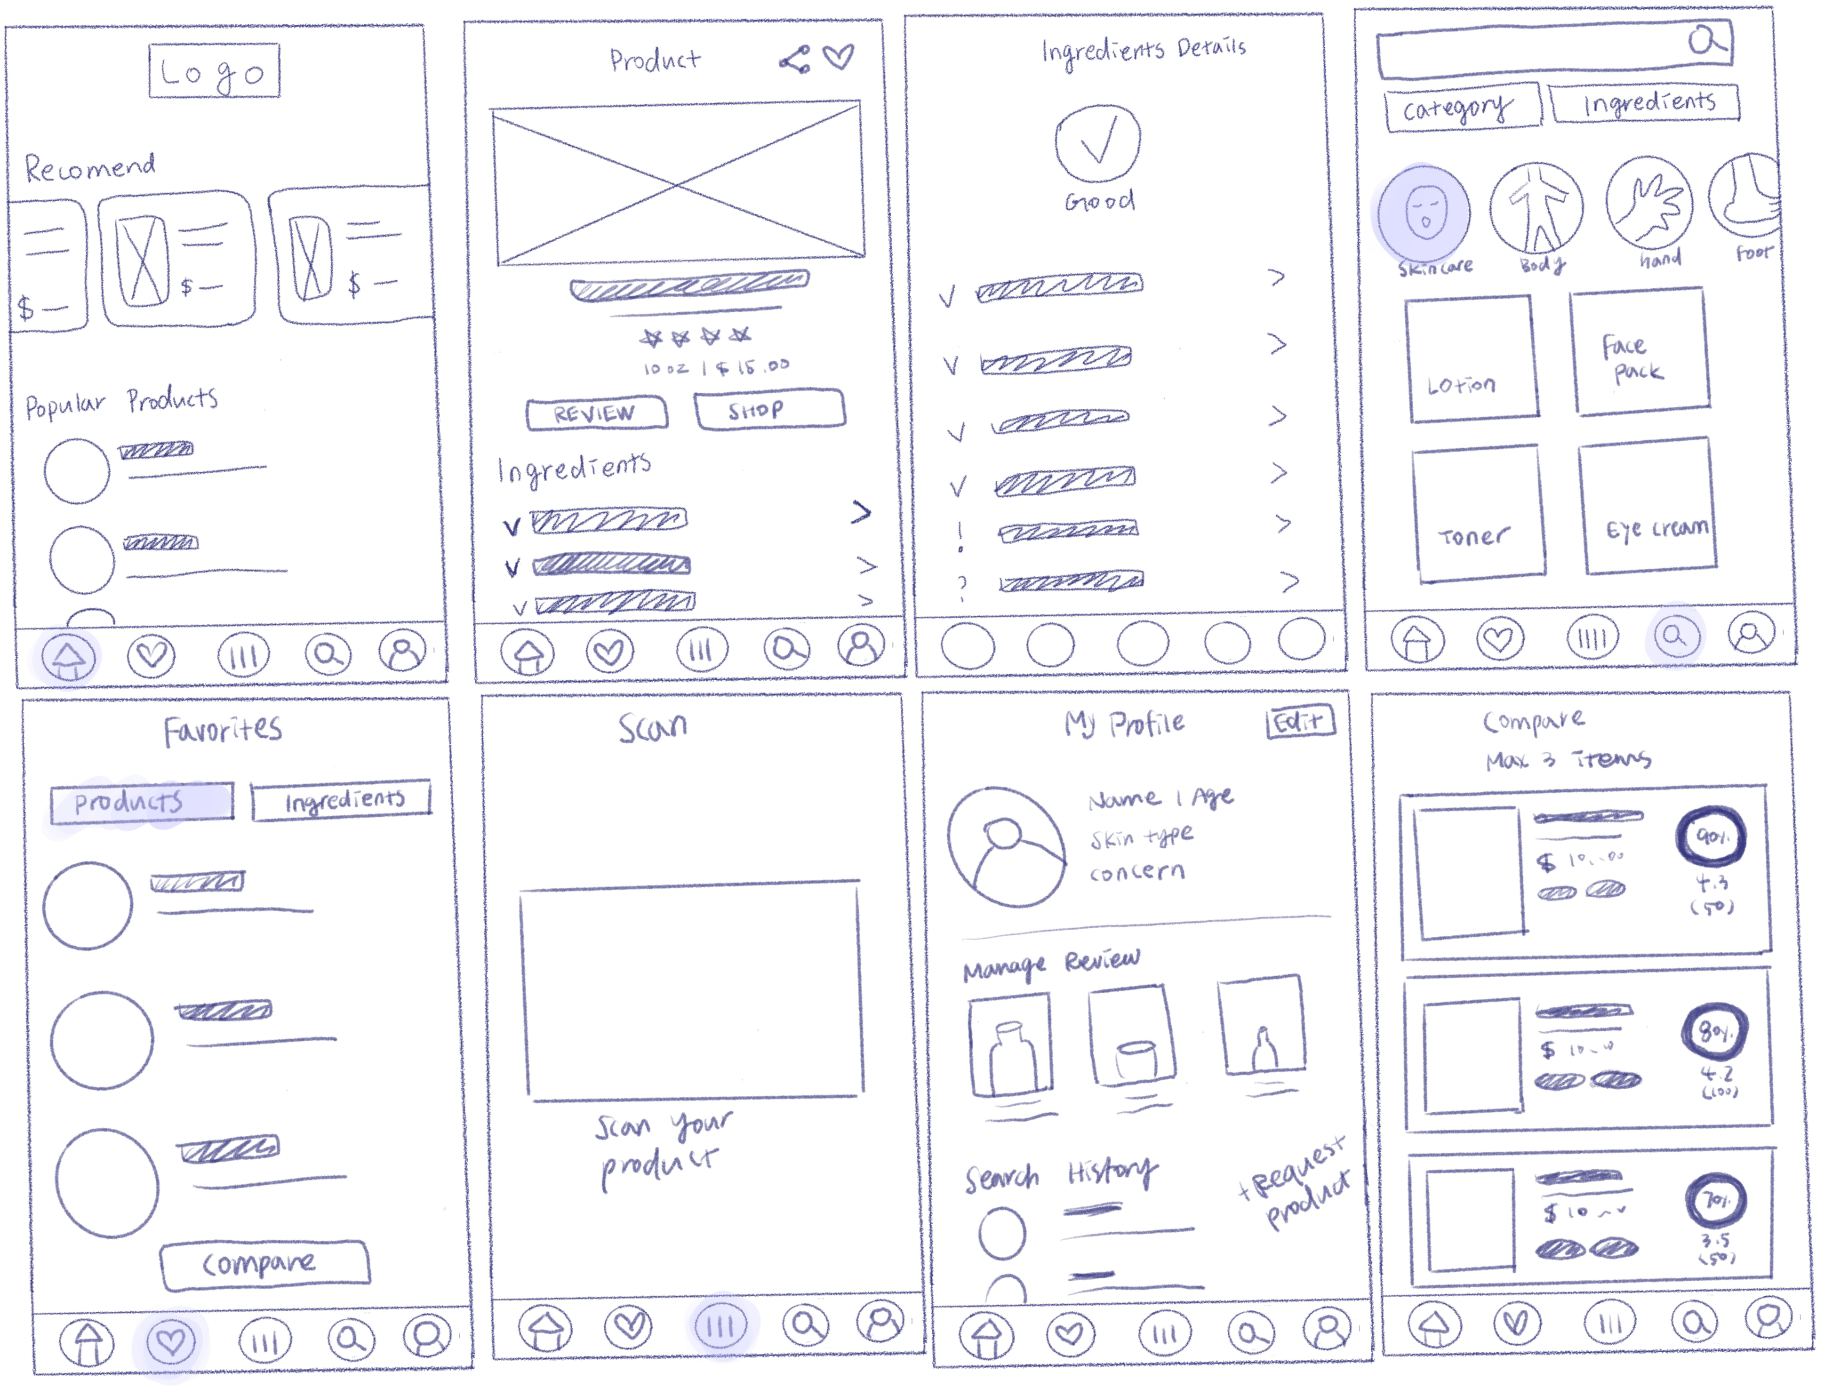 Logo
Recomend
$
$
$
Popular Products
Product
10 oz | $ 15.00
REVIEW
SHOP
Ingredients
Ingredients Details
Good
!
?
Category
Ingredients
Skincare
Body
hand
Foot
Lotion
Face
pack
Toner
Eye cream
Favorites
Products
Ingredients
Compare
Scan
Scan your
product
My Profile
Edit
Name | Age
Skin type
concern
Manage Review
Search History
+Request
product
Compare
Max 3 items
90%
$ 10.00
4.3
(50)
80%
$ 10
4.2
(100)
70%
$ 10
3.5
(50)